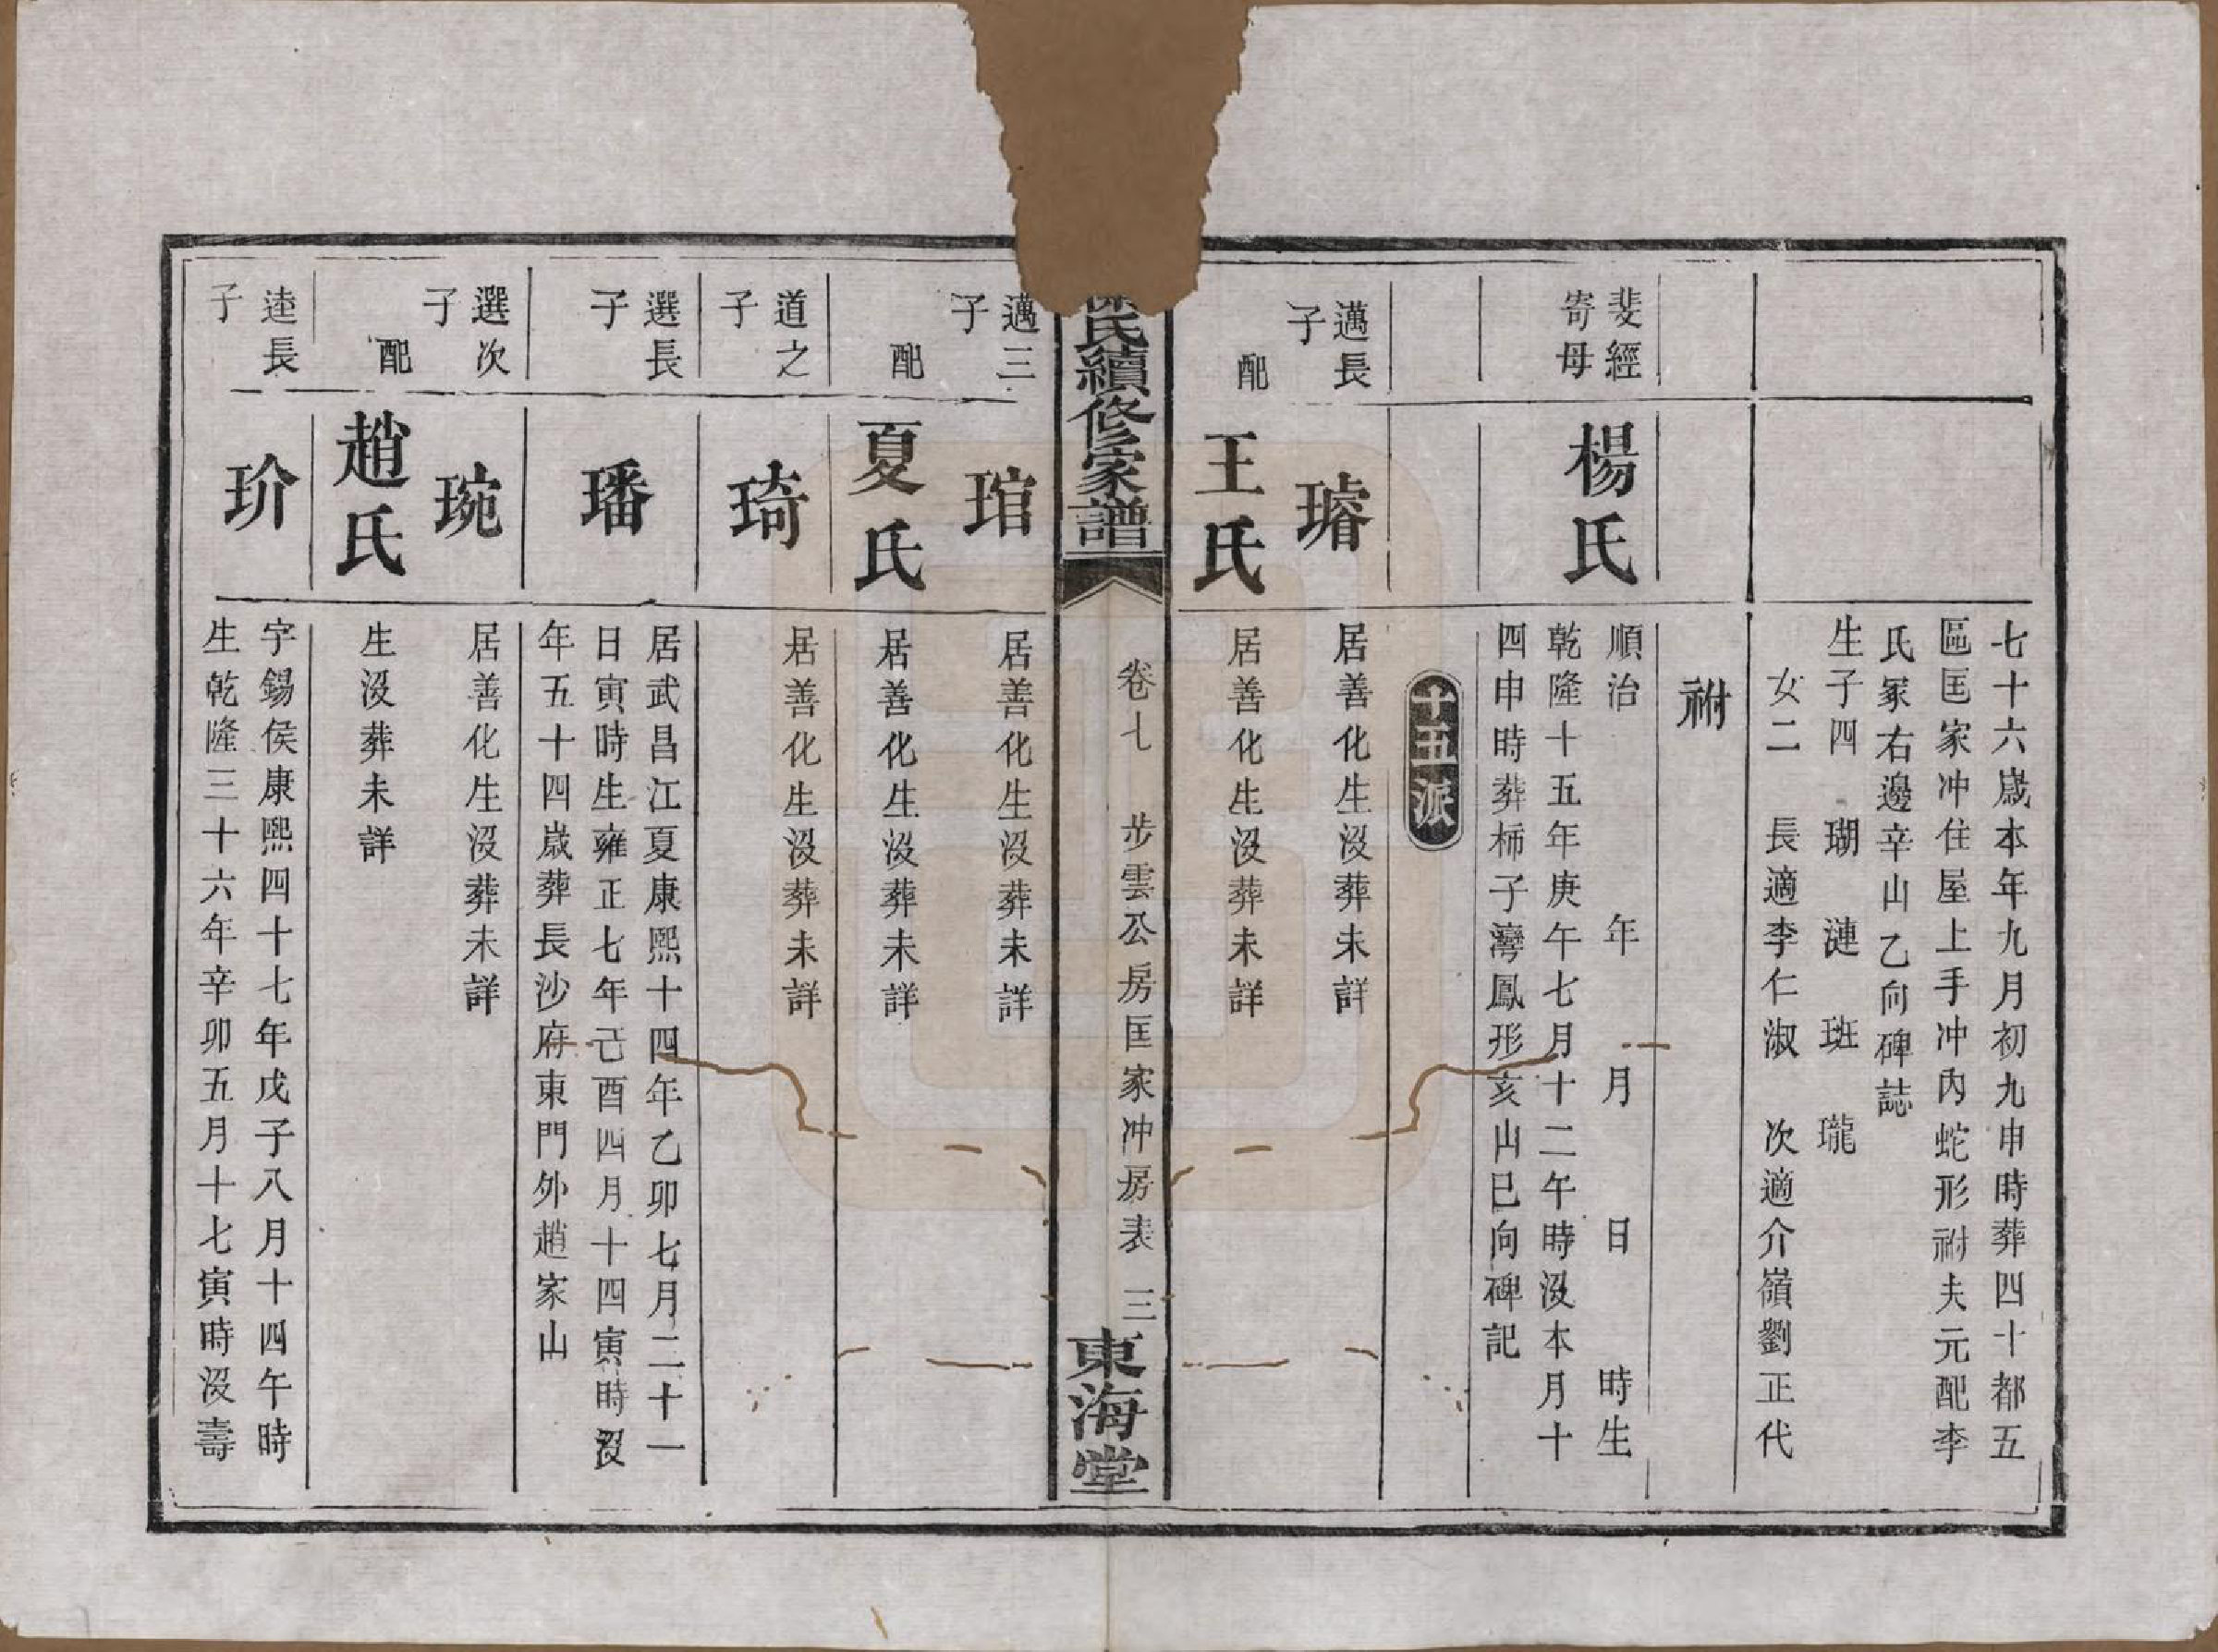 七十六歲本年九月初九申時葬四十都五
區匡家冲住屋上手冲內蛇形祔夫元配李
氏冢右邊辛山乙向碑誌
生子四 瑚 漣 班 瓏
女二 長適李仁淑 次適介嶺劉正代
祔
斐經
寄母
楊氏
順治 年 月 日 時生
乾隆十五年庚午七月十二午時沒本月十
四申時葬柿子灣鳳形亥山巳向碑記
十五派
邁長
子
璿
居善化生沒葬未詳
配
王氏
居善化生沒葬未詳
氏續修家譜
卷七 步雲公房匡家冲房表 三
東海堂
邁三
子
琯
居善化生沒葬未詳
配
夏氏
居善化生沒葬未詳
道之
子
琦
居善化生沒葬未詳
選長
子
璠
居武昌江夏康熙十四年乙卯七月二十一
日寅時生雍正七年己酉四月十四寅時沒
年五十四歲葬長沙府東門外趙家山
選次
子
琬
居善化生沒葬未詳
配
趙氏
生沒葬未詳
逵長
子
玠
字錫侯康熙四十七年戊子八月十四午時
生乾隆三十六年辛卯五月十七寅時沒壽